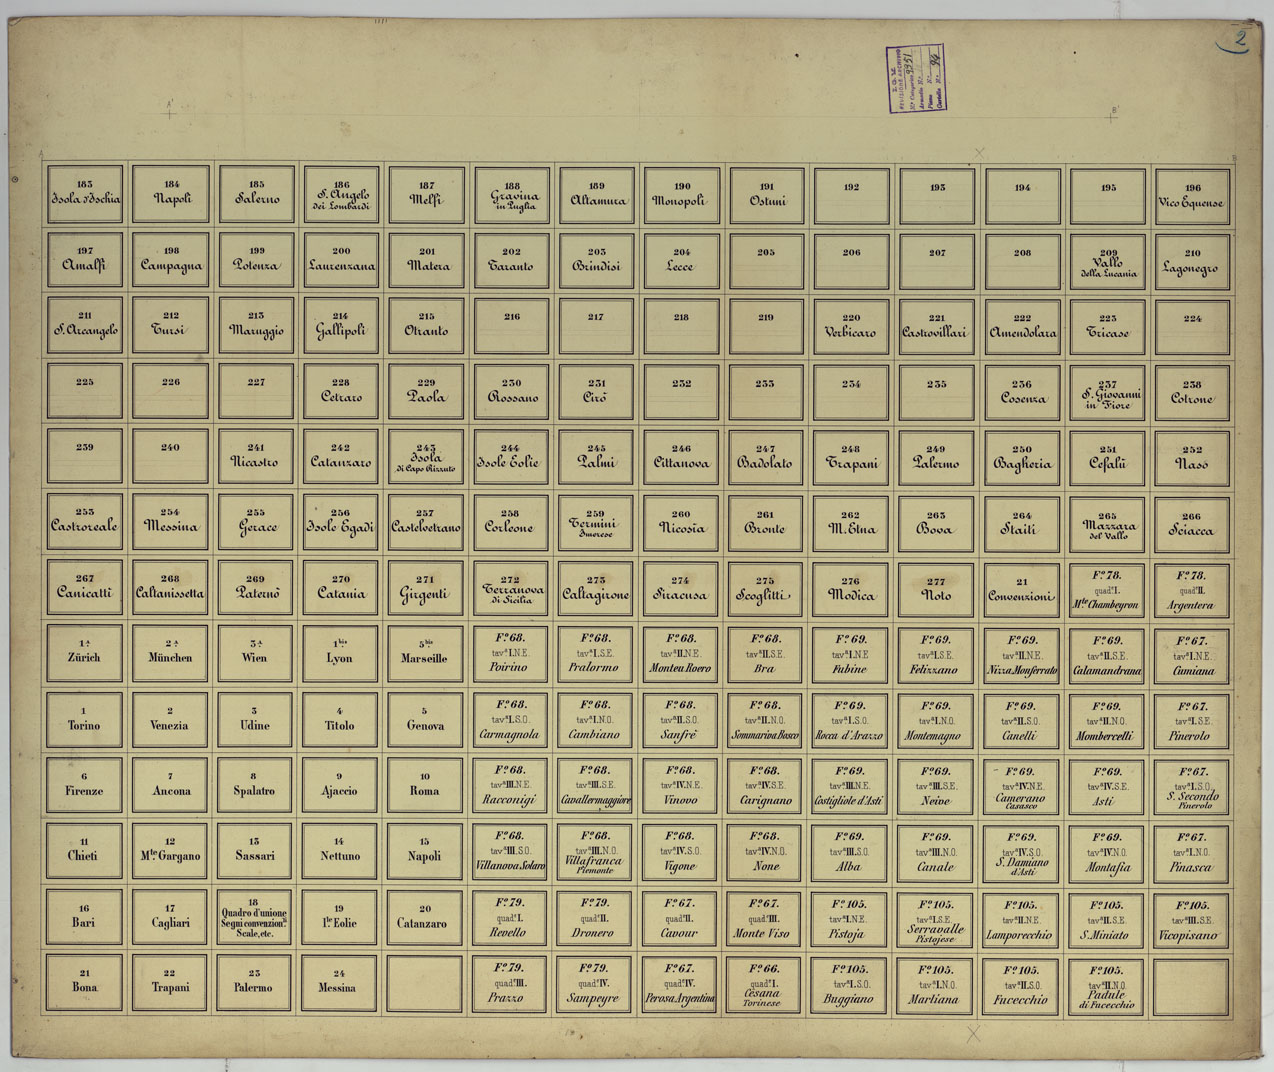 2
A'
B'
A
B
I. G. M.
REVISIONE ARCHIVIO
Nº Categorico 9351
Armadio Nº
Piano Nº
Cartella Nº 94
183
Isola d'Ischia
184
Napoli
185
Salerno
186
S. Angelo
dei Lombardi
187
Melfi
188
Gravina
in Puglia
189
Altamura
190
Monopoli
191
Ostuni
192
193
194
195
196
Vico Equense
197
Amalfi
198
Campagna
199
Potenza
200
Laurenzana
201
Matera
202
Taranto
203
Brindisi
204
Lecce
205
206
207
208
209
Vallo
della Lucania
210
Lagonegro
211
S. Arcangelo
212
Tursi
213
Maruggio
214
Gallipoli
215
Otranto
216
217
218
219
220
Verbicaro
221
Castrovillari
222
Amendolara
223
Tricase
224
225
226
227
228
Cetraro
229
Paola
230
Rossano
231
Cirò
232
233
234
235
236
Cosenza
237
S. Giovanni
in Fiore
238
Cotrone
239
240
241
Nicastro
242
Catanzaro
243
Isola
di Capo Rizzuto
244
Isole Eolie
245
Palmi
246
Cittanova
247
Badolato
248
Trapani
249
Palermo
250
Bagheria
251
Cefalù
252
Naso
253
Castroreale
254
Messina
255
Gerace
256
Isole Egadi
257
Castelvetrano
258
Corleone
259
Termini
Imerese
260
Nicosia
261
Bronte
262
M. Etna
263
Bova
264
Staiti
265
Mazzara
del Vallo
266
Sciacca
267
Canicattì
268
Caltanissetta
269
Paternò
270
Catania
271
Girgenti
272
Terranova
di Sicilia
273
Caltagirone
274
Siracusa
275
Scoglitti
276
Modica
277
Noto
21
Convenzioni
Fº 78.
quadº I.
Mte Chambeyron
Fº 78.
quadº II.
Argentera
1ª
Zürich
2ª
München
3ª
Wien
1bis
Lyon
5bis
Marseille
Fº 68.
tavª I.N.E.
Poirino
Fº 68.
tavª I.S.E.
Pralormo
Fº 68.
tavª II.N.E.
Monteu Roero
Fº 68.
tavª II.S.E.
Bra
Fº 69.
tavª I.N.E
Fubine
Fº 69.
tavª I.S.E.
Felizzano
Fº 69.
tavª II.N.E.
Nizza Monferrato
Fº 69.
tavª II.S.E.
Calamandrana
Fº 67.
tavª I.N.E.
Cumiana
1
Torino
2
Venezia
3
Udine
4
Titolo
5
Genova
Fº 68.
tavª I.S.O.
Carmagnola
Fº 68.
tavª I.N.O.
Cambiano
Fº 68.
tavª II.S.O.
Sanfrè
Fº 68.
tavª II.N.O.
Sommariva Bosco
Fº 69.
tavª I.S.O.
Rocca d'Arazzo
Fº 69.
tavª I.N.O.
Montemagno
Fº 69.
tavª II.S.O.
Canelli
Fº 69.
tavª II.N.O.
Mombercelli
Fº 67.
tavª I.S.E.
Pinerolo
6
Firenze
7
Ancona
8
Spalatro
9
Ajaccio
10
Roma
Fº 68.
tavª III.N.E.
Racconigi
Fº 68.
tavª III.S.E.
Cavallermaggiore
Fº 68.
tavª IV.N.E.
Vinovo
Fº 68.
tavª IV.S.E.
Carignano
Fº 69.
tavª III.N.E.
Costigliole d'Asti
Fº 69.
tavª III.S.E.
Neive
Fº 69.
tavª IV.N.E.
Camerano
Casasco
Fº 69.
tavª IV.S.E.
Asti
Fº 67.
tavª I.S.O.
S. Secondo
Pinerolo
11
Chieti
12
Mte Gargano
13
Sassari
14
Nettuno
15
Napoli
Fº 68.
tavª III.S.O.
Villanova Solaro
Fº 68.
tavª III.N.O.
Villafranca
Piemonte
Fº 68.
tavª IV.S.O.
Vigone
Fº 68.
tavª IV.N.O.
None
Fº 69.
tavª III.S.O.
Alba
Fº 69.
tavª III.N.O.
Canale
Fº 69.
tavª IV.S.O.
S. Damiano
d'Asti
Fº 69.
tavª IV.N.O.
Montafia
Fº 67.
tavª I.N.O.
Pinasca
16
Bari
17
Cagliari
18
Quadro d'unione
Segni convenzionli
Scale, etc.
19
Ile Eolie
20
Catanzaro
Fº 79.
quadº I.
Revello
Fº 79.
quadº II.
Dronero
Fº 67.
quadº II.
Cavour
Fº 67.
quadº III.
Monte Viso
Fº 105.
tavª I.N.E.
Pistoja
Fº 105.
tavª I.S.E.
Serravalle
Pistojese
Fº 105.
tavª II.N.E.
Lamporecchio
Fº 105.
tavª II.S.E.
S. Miniato
Fº 105.
tavª III.S.E.
Vicopisano
21
Bona
22
Trapani
23
Palermo
24
Messina
Fº 79.
quadº III.
Prazzo
Fº 79.
quadº IV.
Sampeyre
Fº 67.
quadº IV.
Perosa Argentina
Fº 66.
quadº I.
Cesana
Torinese
Fº 105.
tavª I.S.O.
Buggiano
Fº 105.
tavª I.N.O.
Marliana
Fº 105.
tavª II.S.O.
Fucecchio
Fº 105.
tavª II.N.O.
Padule
di Fucecchio